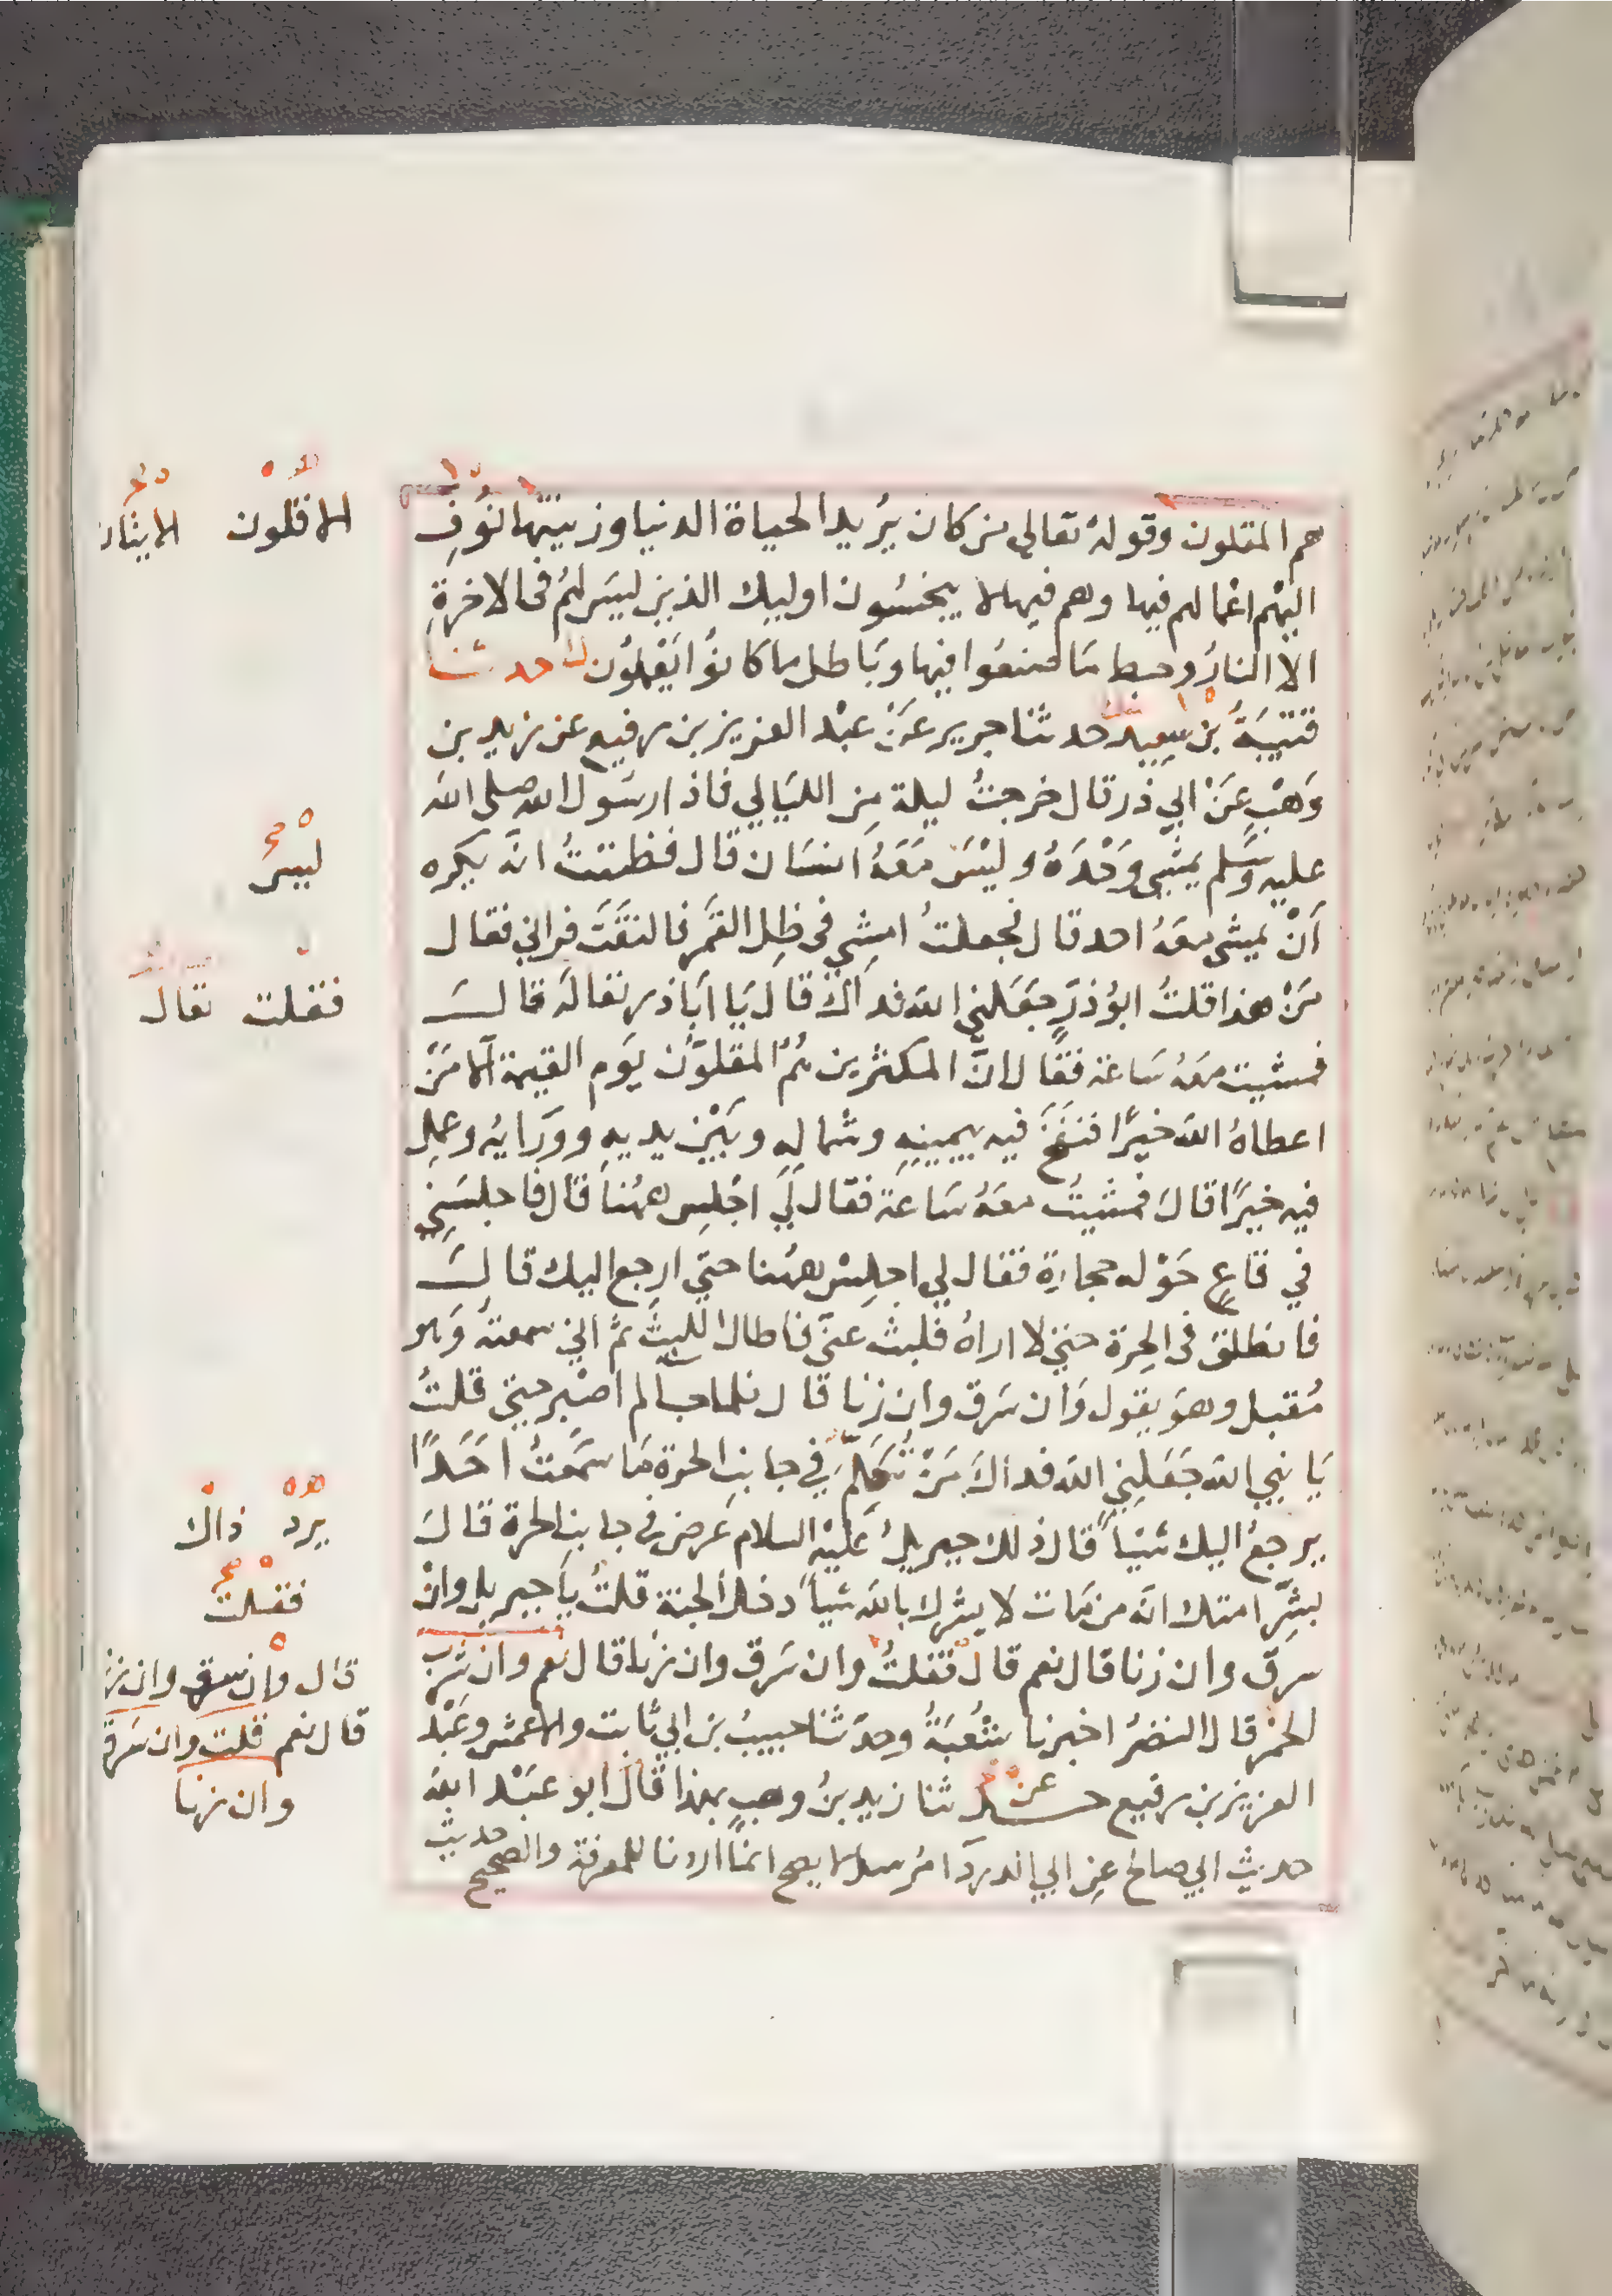 هم المقلون وقوله تعالي من كان يريد الحياة الدنيا وزينتها نوف
اليهم اعمالهم فيها وهم فيها لا يبخسون اوليك الذين ليس لهم في الاخرة
الا النار وحبط ما صنعوا فيها وباطل ما كانوا يعملون حدثنا
قتيبة بن سعيد حدثنا جرير عن عبد العزيز بن رفيع عن زيد بن
وهب عن ابي ذر قال خرجت ليلة من الليالي فاذا رسول الله صلى الله
عليه وسلم يمشي وحده وليس معه انسان قال فظننت انه يكره
أن يمشي معه احد قال فجعلت امشي في ظل القمر فالتفت فراني فقال
من هذا قلت ابو ذر جعلني الله فداك قال يا اباذر تعاله قال
فمشيت معه ساعة فقال ان المكثرين هم المقلون يوم القيمة الا من
اعطاه الله خيرا فنفح فيه يمينه وشماله وبين يديه وورايه وعمل
فيه خيرا قال فمشيت معه ساعة فقال لي اجلس ههنا قال فاجلسني
في قاع حوله حجارة فقال لي اجلس ههنا حتي ارجع اليك قال
فانطلق في الحرة حتي لا اراه فلبث عني فاطال اللبث ثم اني سمعته وهو
مقبل وهو يقول وان سرق وان زنا قال فلما جا لم اصبر حتي قلت
يا نبي الله جعلني الله فداك من تكلم في جانب الحرة ما سمعت احدا
يرجع اليك شيئا قال ذلك جبريل عليه السلام عرض في جانب الحرة قال
بشر امتك انه من مات لا يشرك بالله شيا دخل الجنة قلت يا جبريل وان
سرق وان زنا قال نعم قال فقلت وان سرق وان زنا قال نعم وان شرب
الخمر قال النضر اخبرنا شعبة وحدثنا حبيب بن ابي ثابت والاعمش وعبد
العزيز بن رفيع حدثنا زيد بن وهب بهذا قال ابو عبد الله
حديث ابي صالح عن ابي الدردآ مرسل لا يصح انما اردنا للمعرفة والصحيح حديث
الاقلون
الايثار
ليس
فقلت تعال
يرد ذاك
فقلت
قال وان سرق وان
قال نعم قلت وان سرق
وان زنا
عن